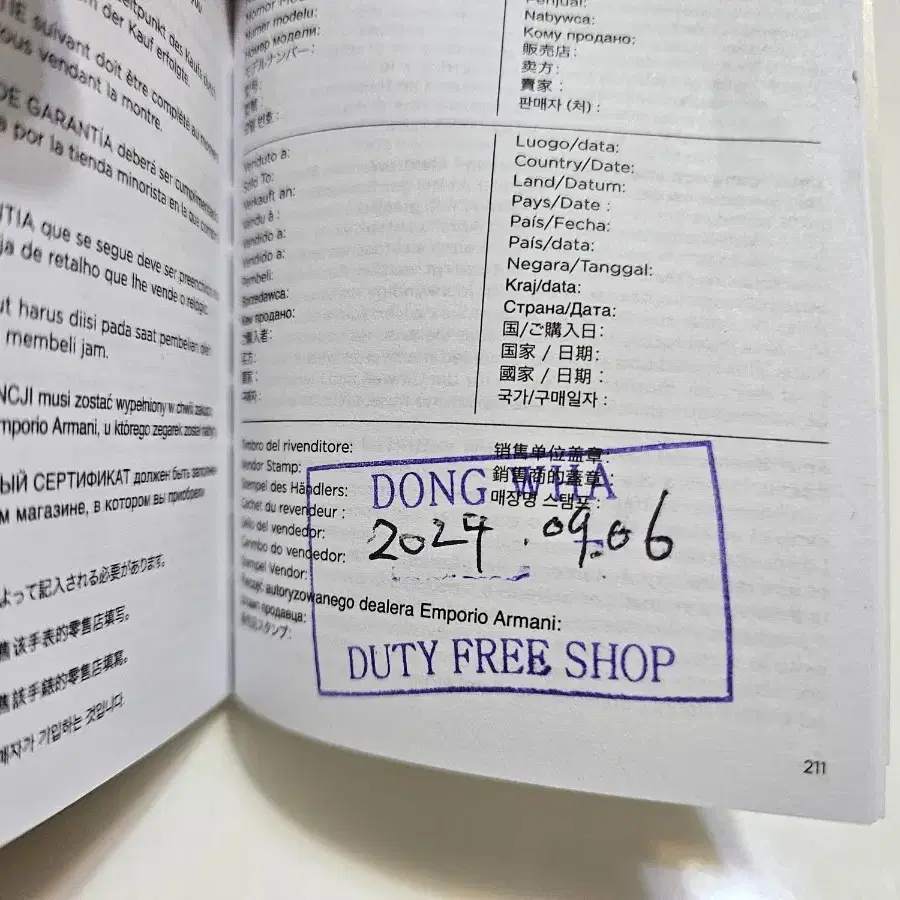 der Kauf erfolgte.
suivant doit être complété au moment
vendant la montre.
DE GARANTÍA deberá ser cumplimentado
por la tienda minorista en la que compró
que se segue deve ser preenchido
de retalho que lhe vende o relógio.
harus diisi pada saat pembelian
membeli jam.
musi zostać wypełniony w chwili zakupu
Emporio Armani, u którego zegarek został
СЕРТИФИКАТ должен быть заполнен
магазине, в котором вы приобрели
よって記入される必要があります。
售该手表的零售店填写。
售該手錶的零售店填寫。
매자가 기입하는 것입니다.
Numer modelu:
Номер модели:
モデルナンバー:
Nabywca:
Кому продано:
販売店:
卖方:
賣家:
판매자 (처) :
Venduto a:
Sold To:
Verkauft an:
Vendu à :
Vendido a:
Vendido a:
Pembeli:
Sprzedawca:
Кому продано:
ご購入者:
Luogo/data:
Country/Date:
Land/Datum:
Pays/Date :
País/Fecha:
País/data:
Negara/Tanggal:
Kraj/data:
Страна/Дата:
国/ご購入日:
国家 / 日期:
國家 / 日期 :
국가/구매일자 :
Timbro del rivenditore:
Vendor Stamp:
Stempel des Händlers:
Cachet du revendeur :
Sello del vendedor:
Carimbo do vendedor:
Stempel Vendor:
Pieczęć autoryzowanego dealera Emporio Armani:
Штамп продавца:
销售单位盖章:
銷售商的蓋章:
매장명 스탬프 :
DONG WHA
2024.09.06
DUTY FREE SHOP
211